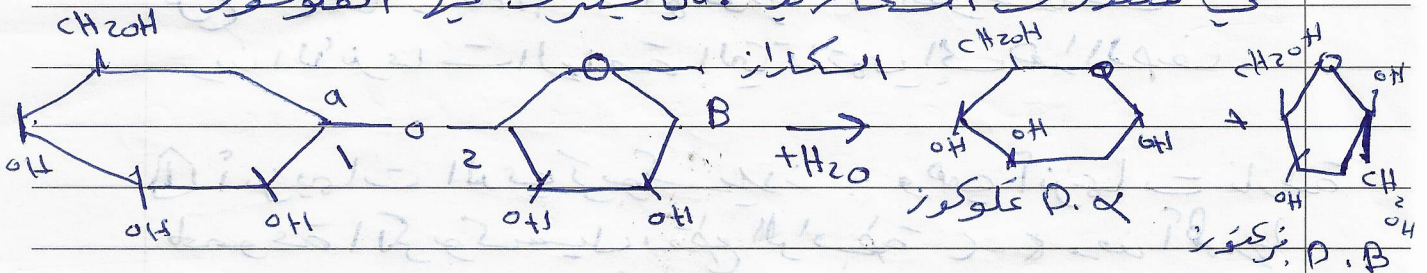 CH2OH
OH
OH
OH
a
1
o
2
OH
OH
B
السكاراز
+H2O
CH2OH
OH
OH
OH
غلوكوز D.α
+
CH2OH
OH
OH
CH2OH
فركتوز D.B